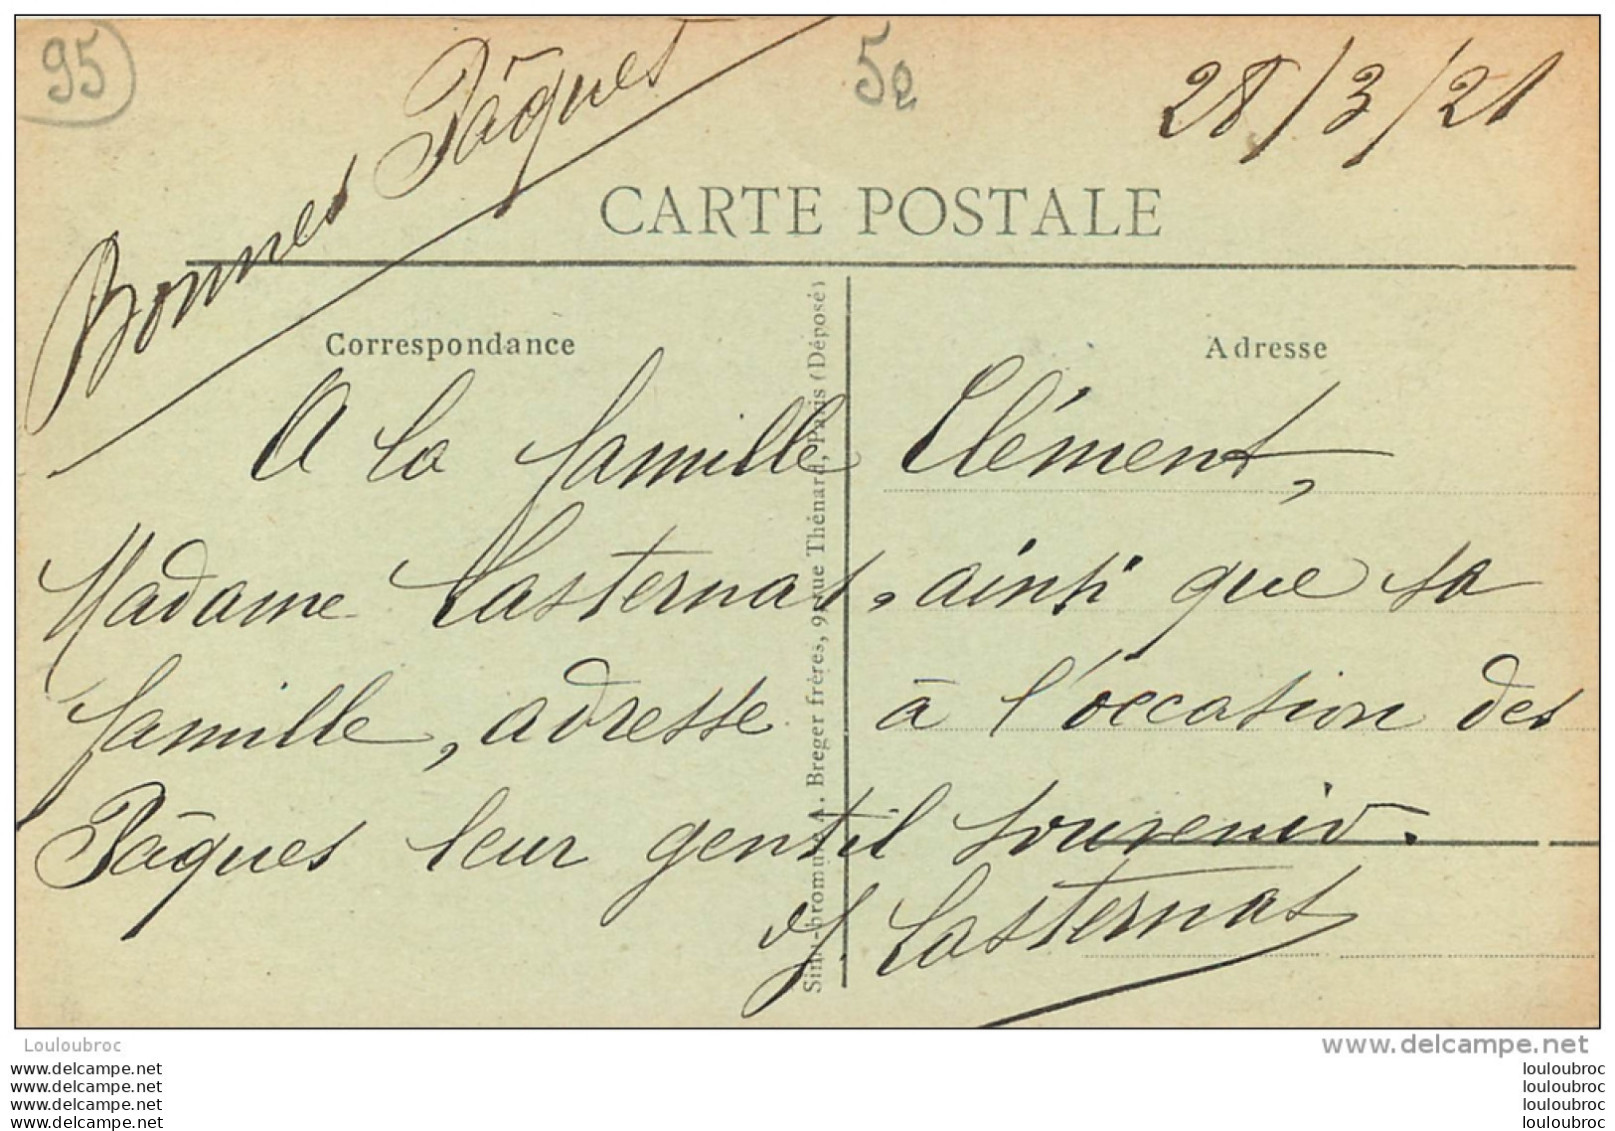 95
Bonnes Pâques
5e
28/3/21
CARTE POSTALE
Correspondance
Adresse
A la famille Clément,
Madame Lasternas, ainsi que sa
famille, adresse à l'occasion des
Pâques leur gentil souvenir.
J. Lasternas
A. Breger frères, 9, rue Thénard, Paris (Déposé)
Louloubroc
www.delcampe.net
www.delcampe.net
www.delcampe.net
www.delcampe.net
www.delcampe.net
louloubroc
louloubroc
louloubroc
louloubroc